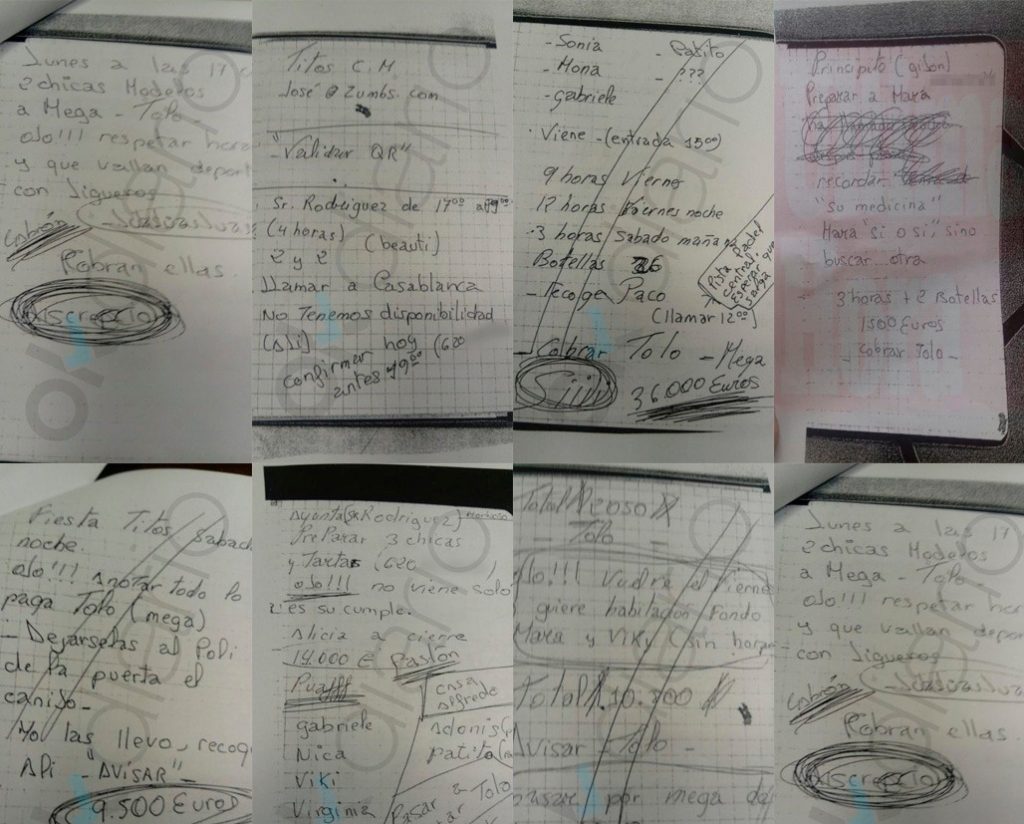 Lunes a las 17
2 chicas Modelos
a Mega - Tolo -
OJO!!! respetar hora
y que vallan depor
con ligueros
Cobran ellas.
Discreción
Titos C.M
José @ Zumbs.com
"Validar QR"
Sr. Rodriguez de 17:00 a
(4 horas) (beauti)
2 y 2
Llamar a Casablanca
No Tenemos disponibilidad
(Ali) hoy (620
confirmar
antes 19:00
- Sonia - Patito
- Mona - ???
- gabriele
Viene - (entrada 1500)
9 horas Vierne
12 horas Viernes noche
3 horas Sabado mañan
Botellas 26
- recoge Paco
(llamar 12:00)
Pista Padel
Central
Esperar que
salga
- Cobrar Tolo - Mega
Siiii 36.000 Euros
Principito (gilon)
Preparar a Mara
recordar
"su medicina"
Mara "si o si", sino
buscar otra
3 horas + 2 Botellas
1500 Euros
- Cobrar Tolo -
Fiesta Titos / Sabad
noche.
OJO!!! Anotar todo lo
paga Tolo (mega)
- Dejarselas al Poli
de la puerta el
canijo -
Yo las llevo, recog
Api - "AVISAR" -
9.500 Euros
Ayunta (Sr Rodriguez)
Preparar 3 chicas
y Tartas (620
OJO!!! no viene solo
es su cumple.
Alicia a cierre
14.000 € Pastón
Puafff
casa
Alfredo
gabriele
Nica
Viki
Virginia
Adonis
patita
Pasar a Tolo
Total
Tolo
OJO!!! Vadra el Viernes
quiere habitacion Fondo
Mara y Viky (sin hora
Total 10.300
Avisar Tolo -
pasar por mega
Lunes a las 17
2 chicas Modelos
a Mega - Tolo -
OJO!!! respetar hor
y que vallan depor
con ligueros
Cobran ellas.
Discreción
okdiario